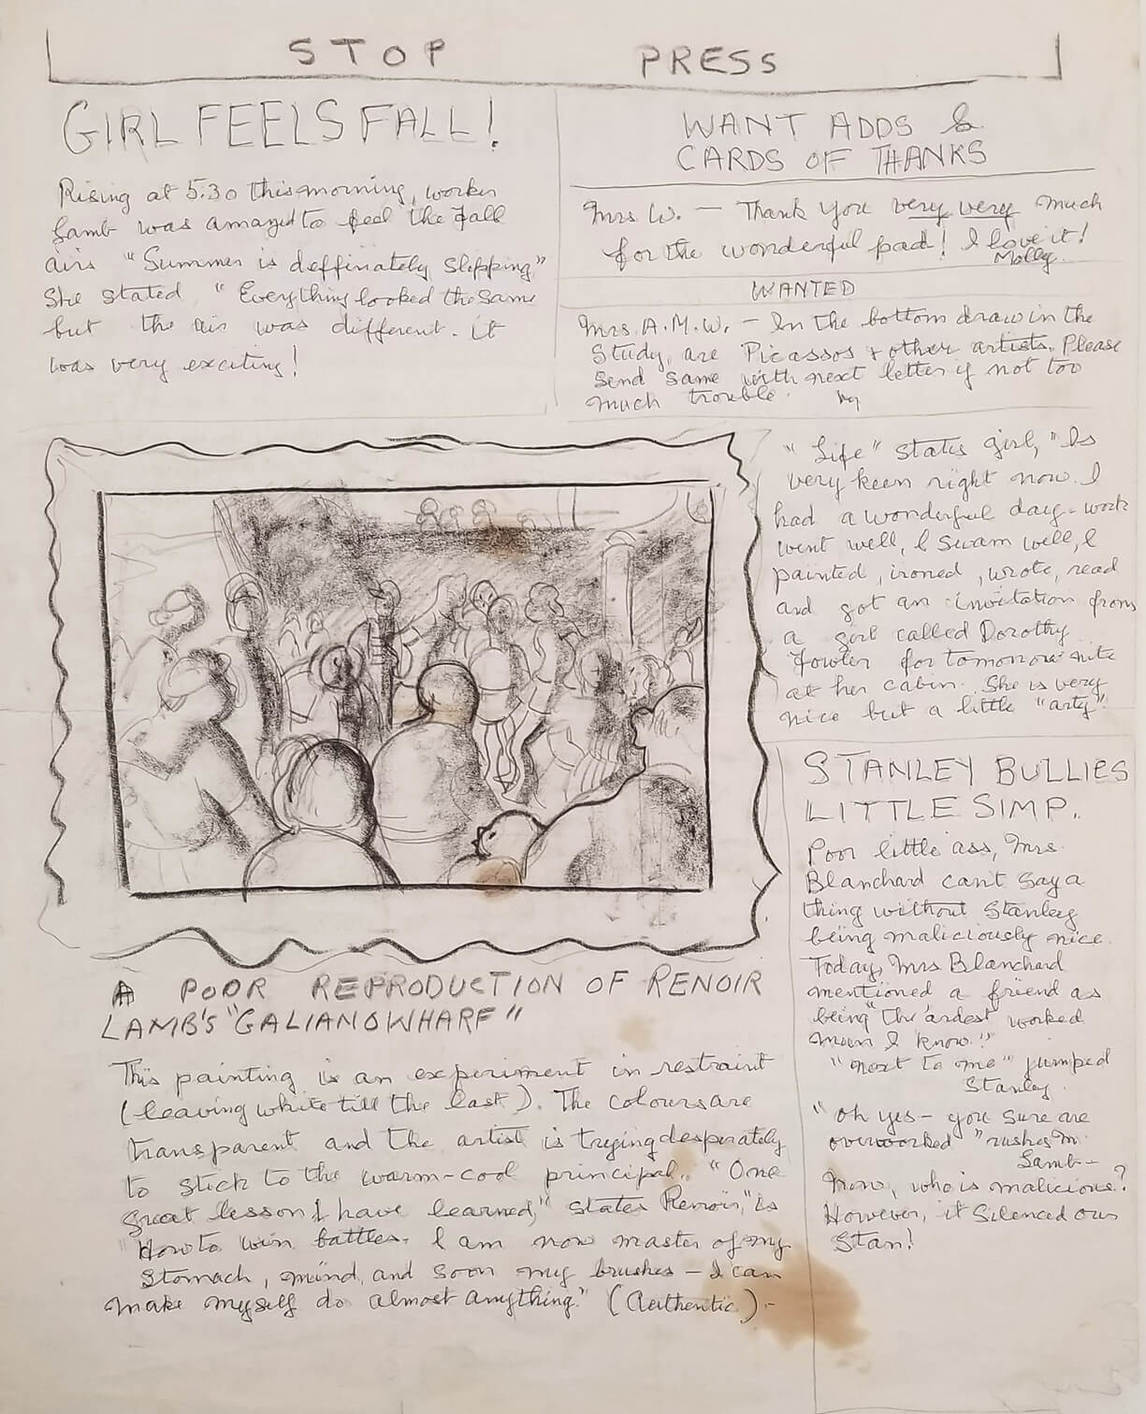 STOP PRESS
GIRL FEELS FALL!
Rising at 5.30 this morning, worker
Lamb was amazed to feel the Fall
airs "Summer is deffinately slipping"
She stated, "Everything looked the same
but the air was different. it
was very exciting!
WANT ADDS &
CARDS OF THANKS
Mrs. W. — Thank you very very much
for the wonderful pad! I love it!
Molly
WANTED
Mrs. A.M.W. — In the bottom draw in the
Study, are Picassos + other artists. Please
send same with next letter if not too
much trouble.
"Life" states girl, "Is
very keen right now. I
had a wonderful day - work
went well, I swam well, I
painted, ironed, wrote, read
and got an invitation from
a girl called Dorothy
Fowler for tomorrow nite
at her cabin. She is very
nice but a little "arty"
A POOR REPRODUCTION OF RENOIR
LAMB'S "GALIANO WHARF"
This painting is an experiment in restraint
(leaving white till the last). The colours are
transparent and the artist is trying desperately
to stick to the warm-cool principal. "One
great lesson I have learned," states Renoir, "is
How to win battles. I am now master of my
stomach, mind, and soon my brushes — I can
make myself do almost anything." (Authentic) -
STANLEY BULLIES
LITTLE SIMP.
Poor little ass, Mrs
Blanchard can't say a
thing without Stanley
being maliciously nice.
Today, Mrs Blanchard
mentioned a friend as
being "the 'ardest worked
man I know."
"next to me" jumped
Stanley.
"Oh yes — you sure are
overworked" rushes M.
Lamb —
Now, who is malicious?
However, it silenced our
Stan!